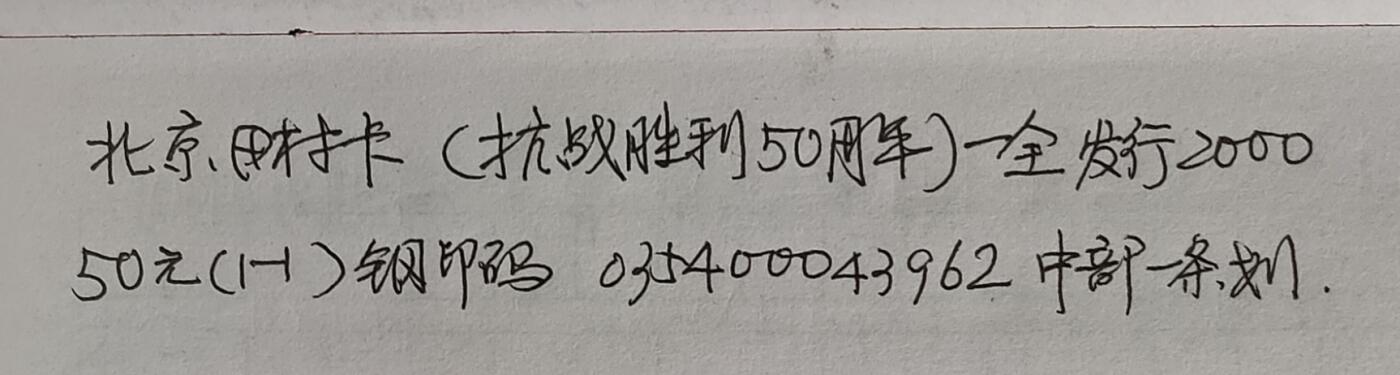 北京.田村卡(抗战胜利50周年)一全发行2000
50元(1-1)钢印码 035400043962 中部一条划.